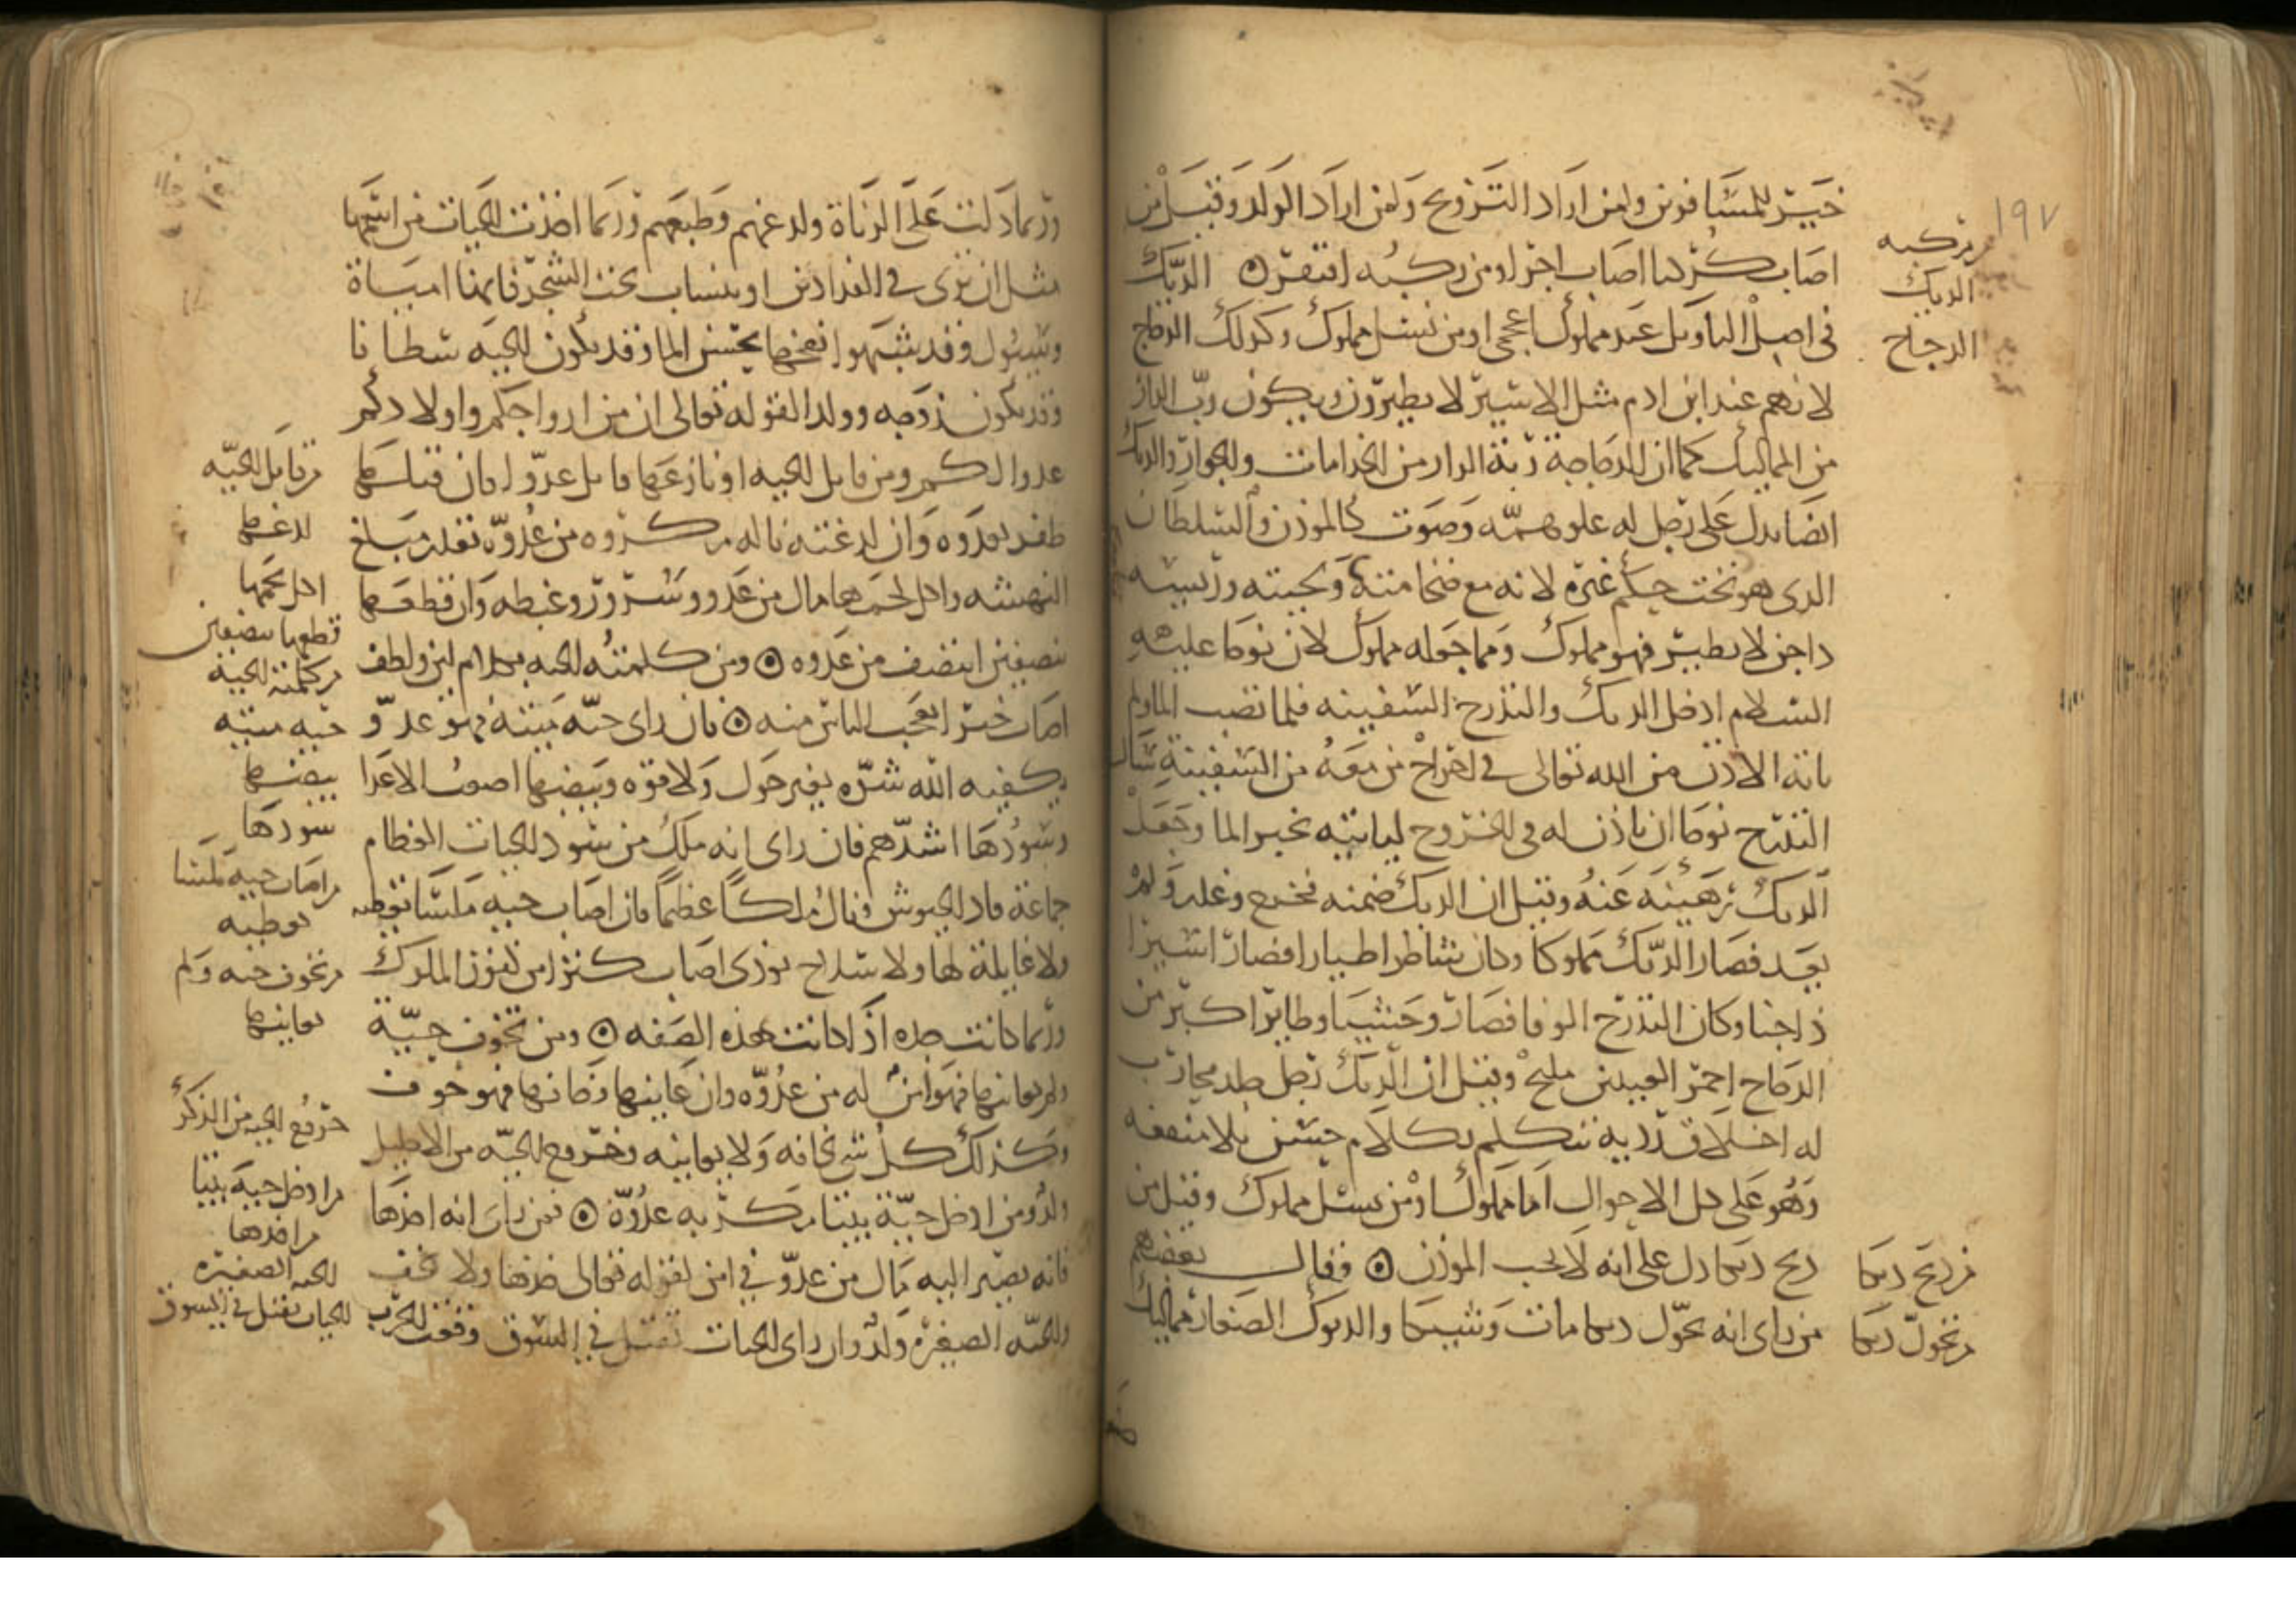 ١٩٧
خير للمسافرين ولمن اراد التزويج ولمن اراد الولد وقيل من
اصاب كركيا اصاب اجرا ومن ركبه افتقر ۞ الديك
في اصل التاويل عبد مملوك اعجمي او من نسل مملوك وكذلك الدجاج
لانهم عند ابن ادم مثل الاسير لا يطيرون ويكون رب الدار
من المماليك كما ان الدجاجة ربة الدار من الخدامات والجوار والديك
ايضا يدل على رجل له علو همه وصوت كالموذن والسلطان
الذي هو تحت حكم غيره لانه مع ضخامته ولحيته وريشه
داجن لا يطير فهو مملوك ومما جعله مملوك لان نوحا عليه
السلام ادخل الديك والتدرج السفينه فلما نضب الما ولم
ياته الاذن من الله تعالى في اخراج من معه من السفينة سال
التدرج نوحا ان ياذن له في الخروج لياتيه بخبر الما وجعل
الديك رهينه عنه وقيل ان الديك ضمنه فخرج وغدر ولم
يعد فصار الديك مملوكا وكان شاطرا طيارا فصار اسيرا
داجنا وكان التدرج الوفا فصار وحشيا وطايرا اكبر من
الدجاج احمر العينين مليح وقيل ان الديك رجل جلد محارب
له اخلاق رديه يتكلم بكلام حسن بلا منفعه
وهو على كل الاحوال اما مملوك او من نسل مملوك وقيل من
ذبح ديكا دل على انه لا يجب الموذن ۞ وقال بعضهم
من راى انه تحول ديكا مات وشيكا والديوك الصغار مماليك
من ركبه
الديك
الدجاج
من ذبح ديكا
من تحول ديكا
وربما دلت على الزناة ولدغهم وطبعهم وربما اخذت الحيات من اسمها
مثل ان ترى في الفدادين او ينساب تحت الشجر فانها امياة
وسيول وقد شبهوا نفخها بحسن الما وقد تكون الحيه سلطانا
وقد تكون زوجه وولد القوله تعالى ان من ازواجكم واولادكم
عدوا لكم ومن قاتل الحيه او نازعها قاتل عدوا فان قتلها
ظفر بعدوه وان لدغته ناله مكروه من عدوه بقدر مبلغ
النهشه واكل لحمها مال من عدو وسرور وغبطه وان قطعها
نصفين انتصف من عدوه ۞ ومن كلمته الحيه بكلام لين ولطف
اصاب خيرا يعجب الناس منه ۞ فان راى حيه ميتة فهو عدو
يكفيه الله شره بغير حول ولا قوه وبيضها اصعب الاعدا
وسودها اشدهم فان راى انه ملك من سود الحيات العظام
جماعة قاد الجيوش ونال ملكا عظيما فان اصاب حيه ملسا تعطيه
ولا غايلة لها ولا سلاح توذى اصاب كنزا من كنوز الملوك
وربما كانت جده اذا كانت بهذه الصفه ۞ ومن تخوف حية
ولم يعاينها فهو امن له من عدوه وان عاينها وخافها فهو خوف
وكذلك كل شي يخافه ولا يعاينه وخروج الحيه من الاحليل
ولد ومن ادخل حية بيتا مكر به عدوه ۞ فمن راى انه اخذها
فانه يصير اليه مال من عدو في امن لقوله تعالى خذها ولا تخف
والحيه الصغيره ولد وان راى الحيات تقتل في السوق وقعت الحرب
من قاتل الحيه
لدغها
اكل لحمها
قطعها نصفين
من كلمته الحية
حيه ميته
بيضها
سودها
من اصاب حيه ملسا
تعطيه
من تخوف حيه ولم
يعاينها
خروج الحيه من الذكر
من ادخل حيه بيتا
من اخذها
الحيه الصغيره
الحيات تقتل في السوق